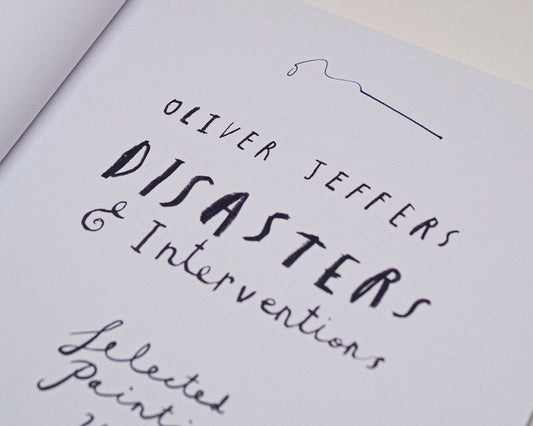 OLIVER JEFFERS
DISASTERS
& Interventions
Selected